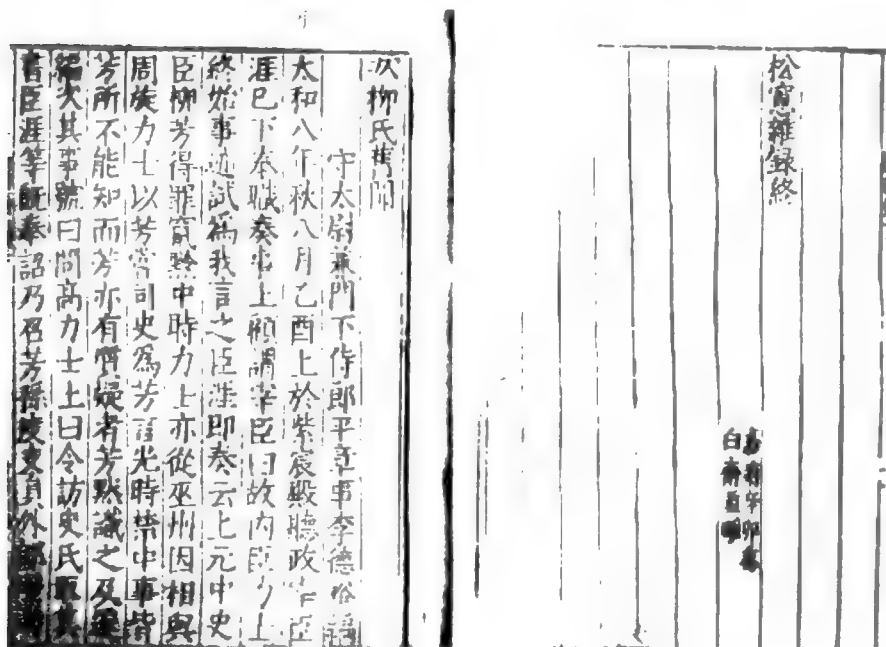 松窓雜録終
次柳氏舊聞
守太尉兼門下侍郎平章事李德裕
太和八年秋八月乙酉上於紫宸殿聽政宰臣
涯已下奉職奏事上顧謂宰臣曰故内臣力士
終始事迹試爲我言之臣涯即奏云上元中史
臣柳芳得罪竄黔中時力士亦從巫州因相與
周旋力士以芳嘗司史爲芳言先時禁中事皆
芳所不能知而芳亦有質疑者芳默識之及還
編次其事號曰問高力士上曰令訪史氏取其
書臣涯等既奉詔乃召芳孫度支員外郎